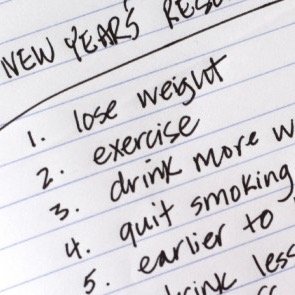 NEW YEAR'S RESO
1. lose weight
2. exercise
3. drink more w
4. quit smoking
5. earlier to
drink less